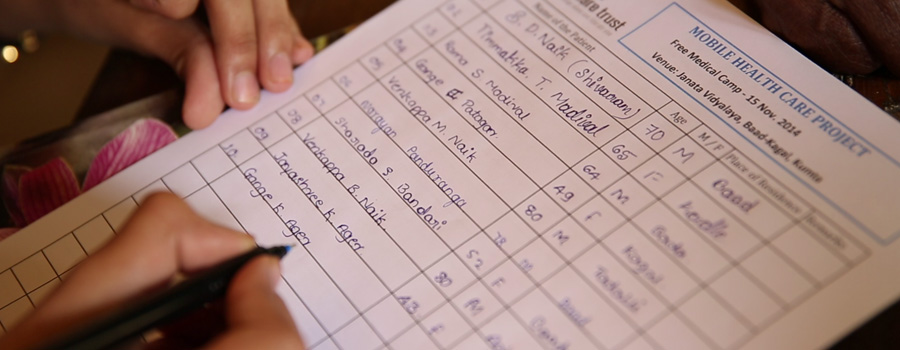 are trust
MOBILE HEALTH CARE PROJECT
Free Medical Camp - 15 Nov. 2014
Venue: Janata Vidyalaya, Baad-Kagal, Kumta
Name of the Patient Age M/F Place of Residence
B. D. Naik (Shivarani) 70 M Baad
Thimakka. T. Madival 65 F
Rama S Madival 64 M
04 Gange Patagar 49 f Kagal
05 Venkappa M. Naik 80 M
06 Narayan Panduranga 78 m
07 Sharada S Bandari 52 F
08 Venkappa B. Naik 80 M
09 Jayashree K Ager 43 F
10 Gange K Ager